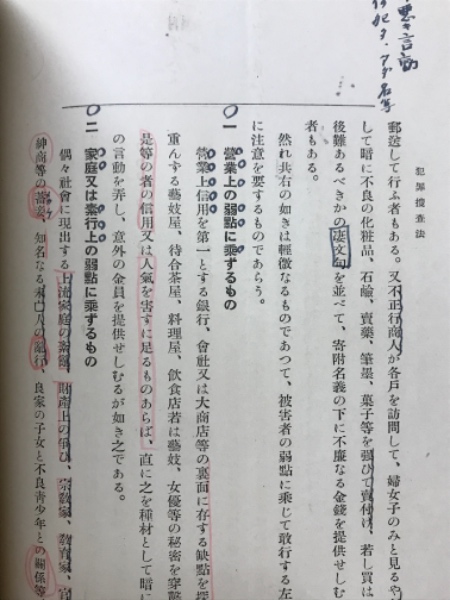 悪キ言動
名等
犯罪捜査法
郵送して行ふ者もある。又不正行商人が各戸を訪問して、婦女子のみと見るや
して暗に不良の化粧品、石鹼、賣藥、筆墨、菓子等を强ひて賣付け、若し買は
後難あるべきかの凄文句を並べて、寄附名義の下に不廉なる金錢を提供せしむ
者もある。
然れ共右の如きは輕微なるものであつて、被害者の弱點に乘じて敢行する左
に注意を要するものであらう。
一 營業上の弱點に乘ずるもの
營業上信用を第一とする銀行、會社又は大商店等の裏面に存する缺點を探
重んずる藝妓屋、待合茶屋、料理屋、飮食店若は藝妓、女優等の秘密を穿鑿
是等の者の信用又は人氣を害すに足るものあらば、直に之を種材として暗に
の言動を弄し、意外の金員を提供せしむるが如き之である。
二 家庭又は素行上の弱點に乘ずるもの
偶々社會に現出する上流家庭の紊亂、財產上の爭ひ、宗敎家、敎育家、官
紳商等の蓄妾、知名なる未亡人の亂行、良家の子女と不良靑少年との關係等